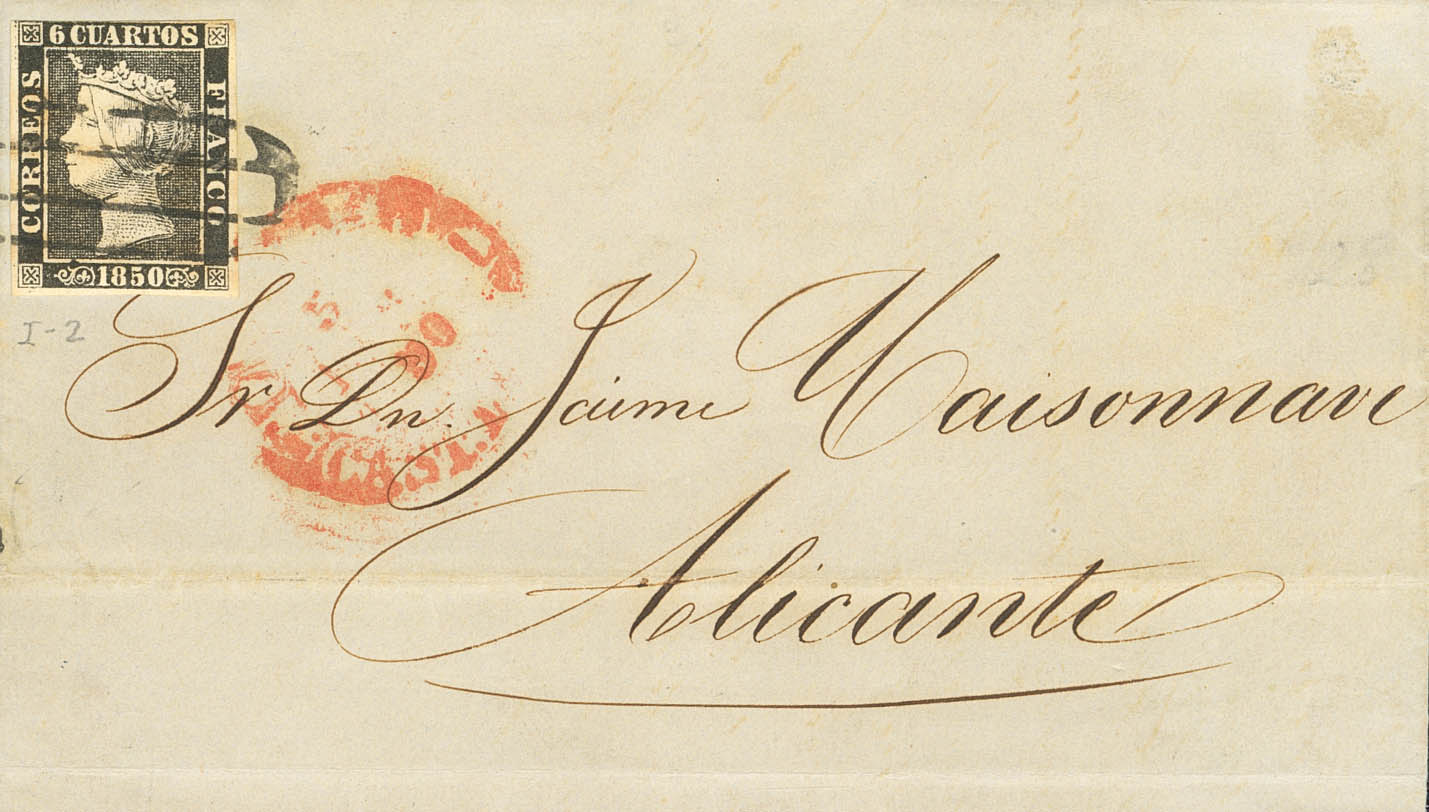 6 CUARTOS
CORREOS
FRANCO
1850
I-2
5
Sr Dn. Jaime Maisonnave
Alicante